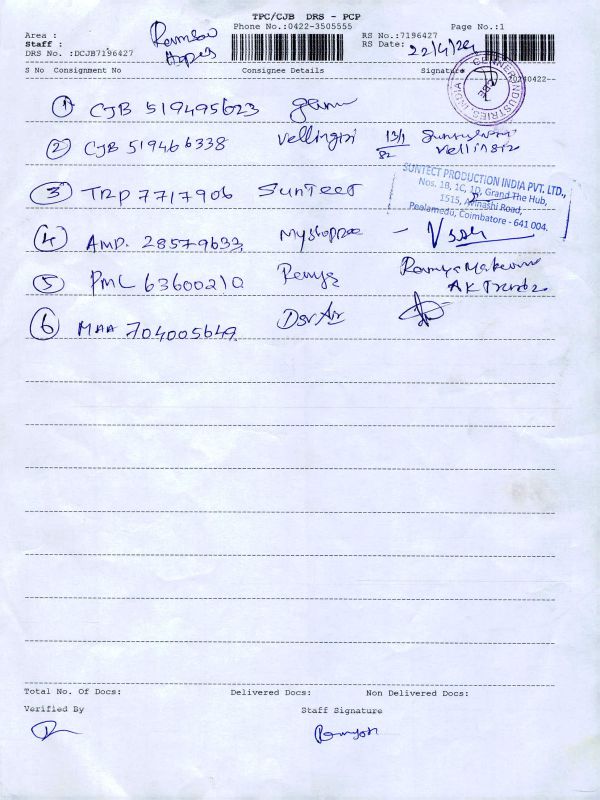 TPC/CJB DRS - PCP
Phone No.:0422-3505555
Page No.:1
Area :
Staff :
DRS No. :DCJB7196427
RS No.:7196427
RS Date: 22/4/24
Hopes
20240422
S No Consignment No Consignee Details Signature
CORNER INDUSTRIES INDIA
① CJB 519495623
② CJB 519466338 Vellingiri
Vellingiri
③ TRP 7717906 SunTect
SUNTECT PRODUCTION INDIA PVT. LTD.,
Nos. 1B, 1C, 1D, Grand The Hub,
1515, Avinashi Road,
Peelamedu, Coimbatore - 641 004.
④ AMD. 28579633 -
⑤ PML 63600210 Remya
AK Trends
⑥ MAA 704005649
Total No. Of Docs: Delivered Docs: Non Delivered Docs:
Verified By Staff Signature